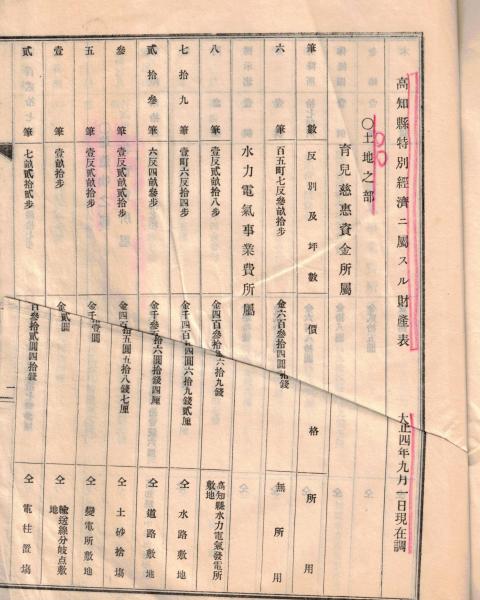 高知縣特別經濟ニ屬スル財產表　大正四年九月一日現在調
〇土地之部
育兒慈惠資金所屬
筆數　反別及坪數　價格　所用
六筆　百五町七反參畝拾步　金六百參拾四圓　拾錢　無所用
水力電氣事業費所屬
八筆　壹反貳畝拾八步　金四百參拾　六拾九錢　高知縣水力電氣發電所敷地
七拾九筆　壹町六反拾四步　金千四百　拾四圓六拾九錢貳厘　仝　水路敷地
貳拾參筆　六反四畝參步　金千參　拾六圓拾錢四厘　仝　道路敷地
參筆　壹反貳畝貳拾步　金四　拾五圓五拾八錢七厘　仝　土砂捨場
五筆　壹反貳畝貳拾步　金千　壹圓　仝　變電所敷地
壹筆　壹畝拾步　金貳圓　仝　輸送線分岐點敷地
貳筆　七畝貳拾貳步　百參拾貳圓四拾錢　仝　電柱置場